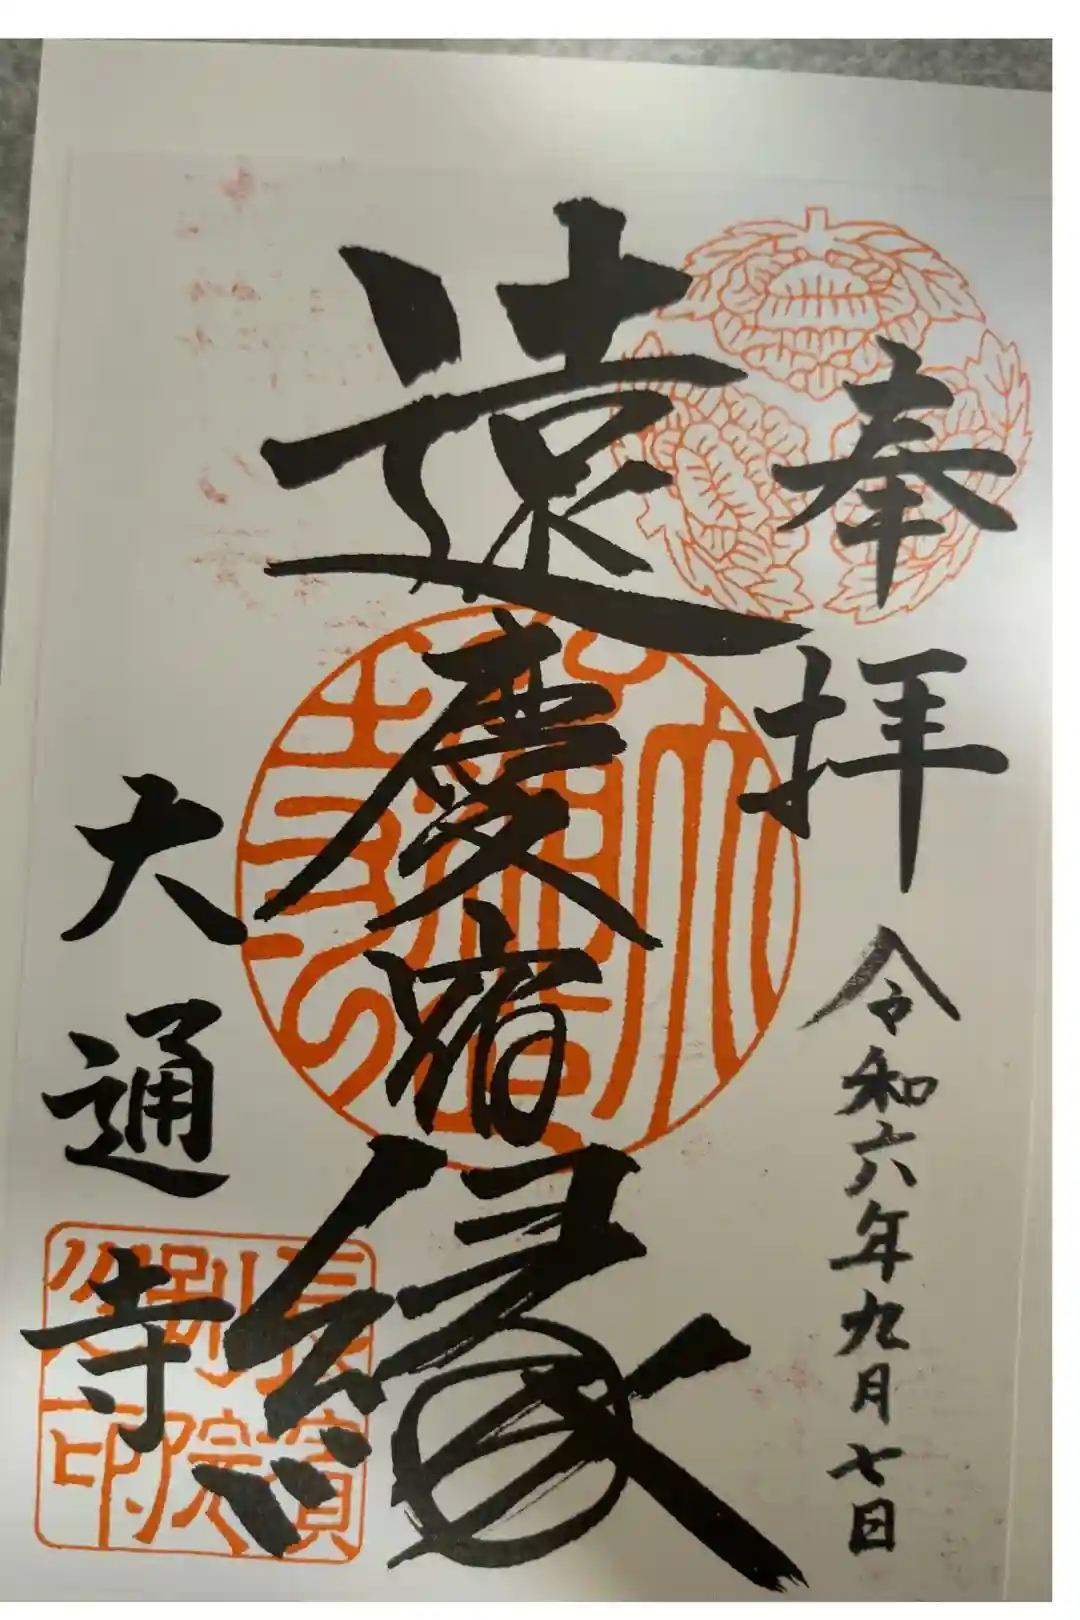 奉拝
令和六年九月七日
遠慶宿縁
大通寺
大通寺
長濱別院之印